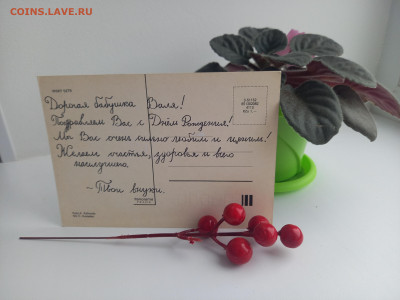 COINS.LAVE.RU
Дорогая бабушка Валя!
Поздравляем Вас с Днём Рождения!
Мы Вас очень сильно любим и ценим!
Желаем счастья, здоровья и всего
наилучшего.
~Твои внуки.